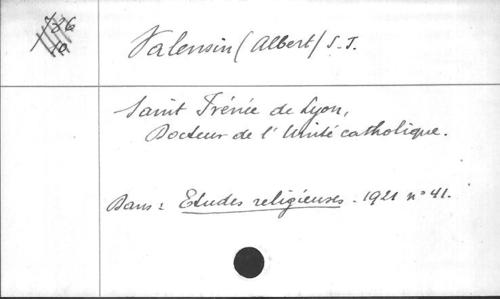 Valensin (Albert) S.J.
Saint Irénée de Lyon,
Docteur de l'Unité catholique.
Dans : Etudes religieuses. 1921 n° 41.